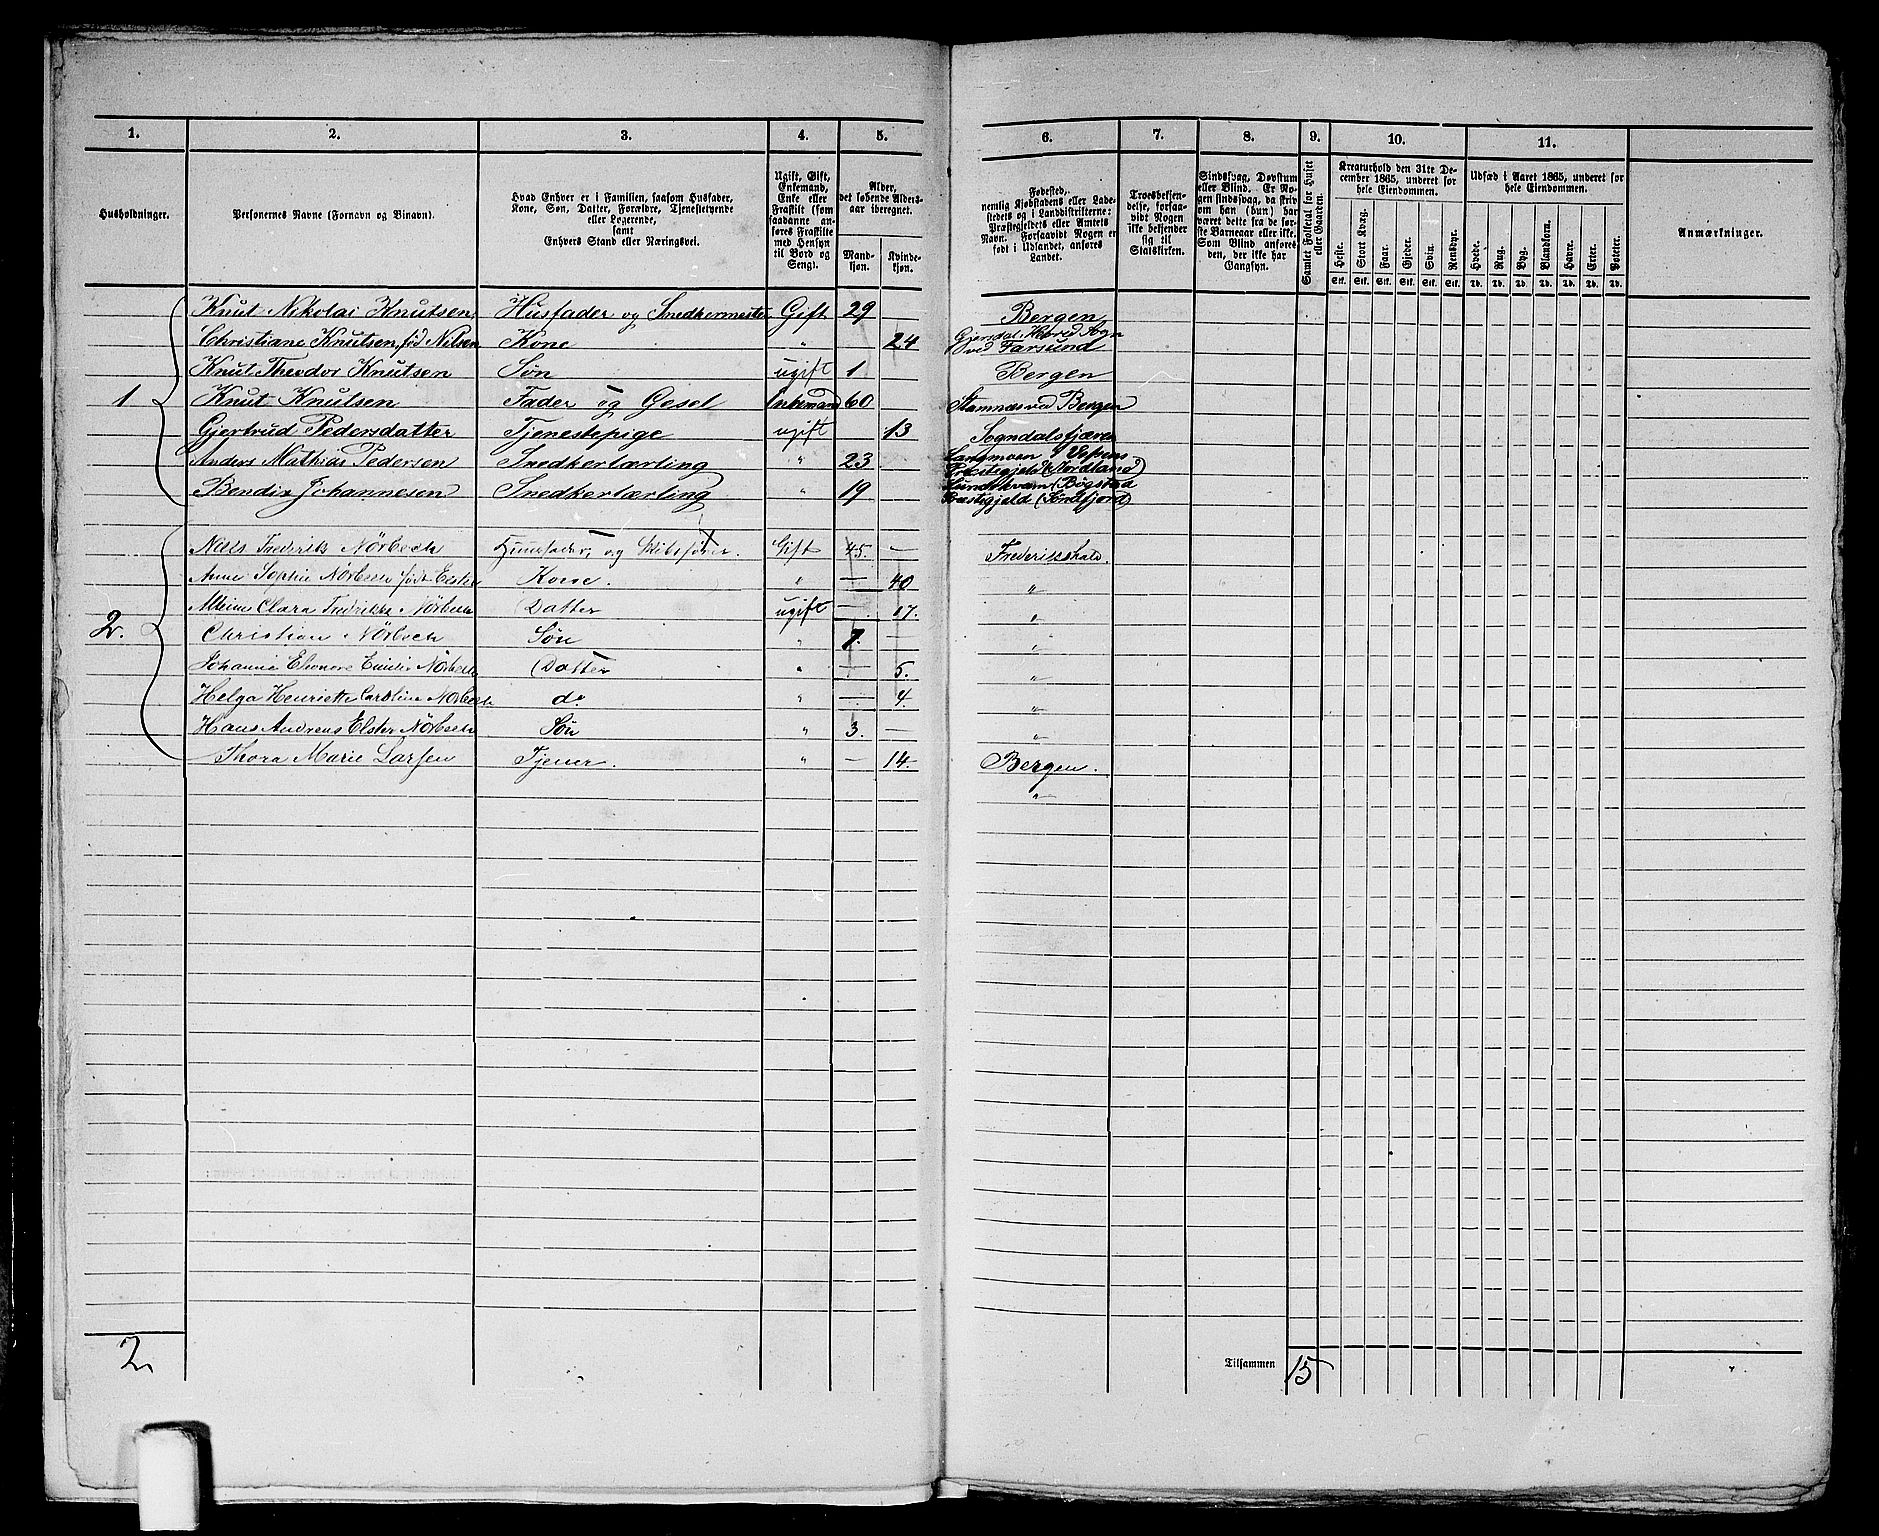 1. 2. 3. 4. 5. 6. 7. 8. 9. 10. 11.
Husholdninger.
Personernes Navne (Fornavn og Binavn).
Hvad Enhver er i Familien, saasom Husfader,
Kone, Søn, Datter, Forældre, Tjenestetyende
eller Logerende,
samt
Enhvers Stand eller Næringsvei.
Ugift, Gift,
Enkemand,
Enke eller
Fraskilt (som
saadanne an-
føres Fraskilte
med Hensyn
til Bord og
Seng).
Alder,
det løbende Alders-
aar iberegnet.
Mand-
kjøn.
Kvinde-
kjøn.
Fødested,
nemlig Kjøbstadens eller Lade-
stedets og i Landdistrikterne:
Præstegjeldets eller Amtets
Navn. Forsaavidt Nogen er
født i Udlandet, anføres
Landet.
Troesbekjen-
delse, forsaa-
vidt Nogen
ikke bekjender
sig til
Statskirken.
Sindssvag, Døvstum
eller Blind. Er No-
gen sindssvag, da skriv
om han (hun) har
været dette fra de før-
ste Barneaar eller ikke.
Som Blind anføres
den, der ikke har
Gangsyn.
Samlet Folketal for Huset
eller Gaarden.
Kreaturhold den 31te De-
cember 1865, underet for
hele Eiendommen.
Heste. Stort Kvæg. Faar. Gjeder. Svin. Rensdyr.
Stk. Stk. Stk. Stk. Stk. Stk.
Udsæd i Aaret 1865, underet for
hele Eiendommen.
Hvede. Rug. Byg. Blandkorn. Havre. Erter. Poteter.
Td. Td. Td. Td. Td. Td. Td.
Anmærkninger.
1
Knut Nikolai Knutsen Husfader og Snedkermester Gift 29 Bergen
Christiane Knutsen, fød Nilsen Kone " 24 Sogn ved Farsund
Knut Theodor Knutsen Søn ugift 1 Bergen
Knut Knutsen Fader og Gesel Enkemand 60 Stamnæs ved Bergen
Gjertrud Pedersdatter Tjenestepige ugift 13 Sogndalsfjæren
Anders Mathias Pedersen Snedkerlærling " 23
Præstegjeld (Nordland)
Bendix Johannesen Snedkerlærling " 19
Præstegjeld (Søndfjord)
2.
Niels Frederik Nörbech Huusfader og Skibsfører. Gift 45. — Frederikshald.
Anne Sophie Nörbech født Elster Kone. " — 40 "
Clara Fredrikke Nörbech Datter ugift — 17. "
Christian Nörbech Søn " 7. — "
Johanne Eleonore Emilie Nörbech Datter " — 5. "
Helga Henriette Caroline Nörbech do " — 4. "
Hans Andreas Elster Nörbech Søn " 3. — "
Thora Marie Larsen Tjener. " — 14. Bergen.
"
2
Tilsammen 15